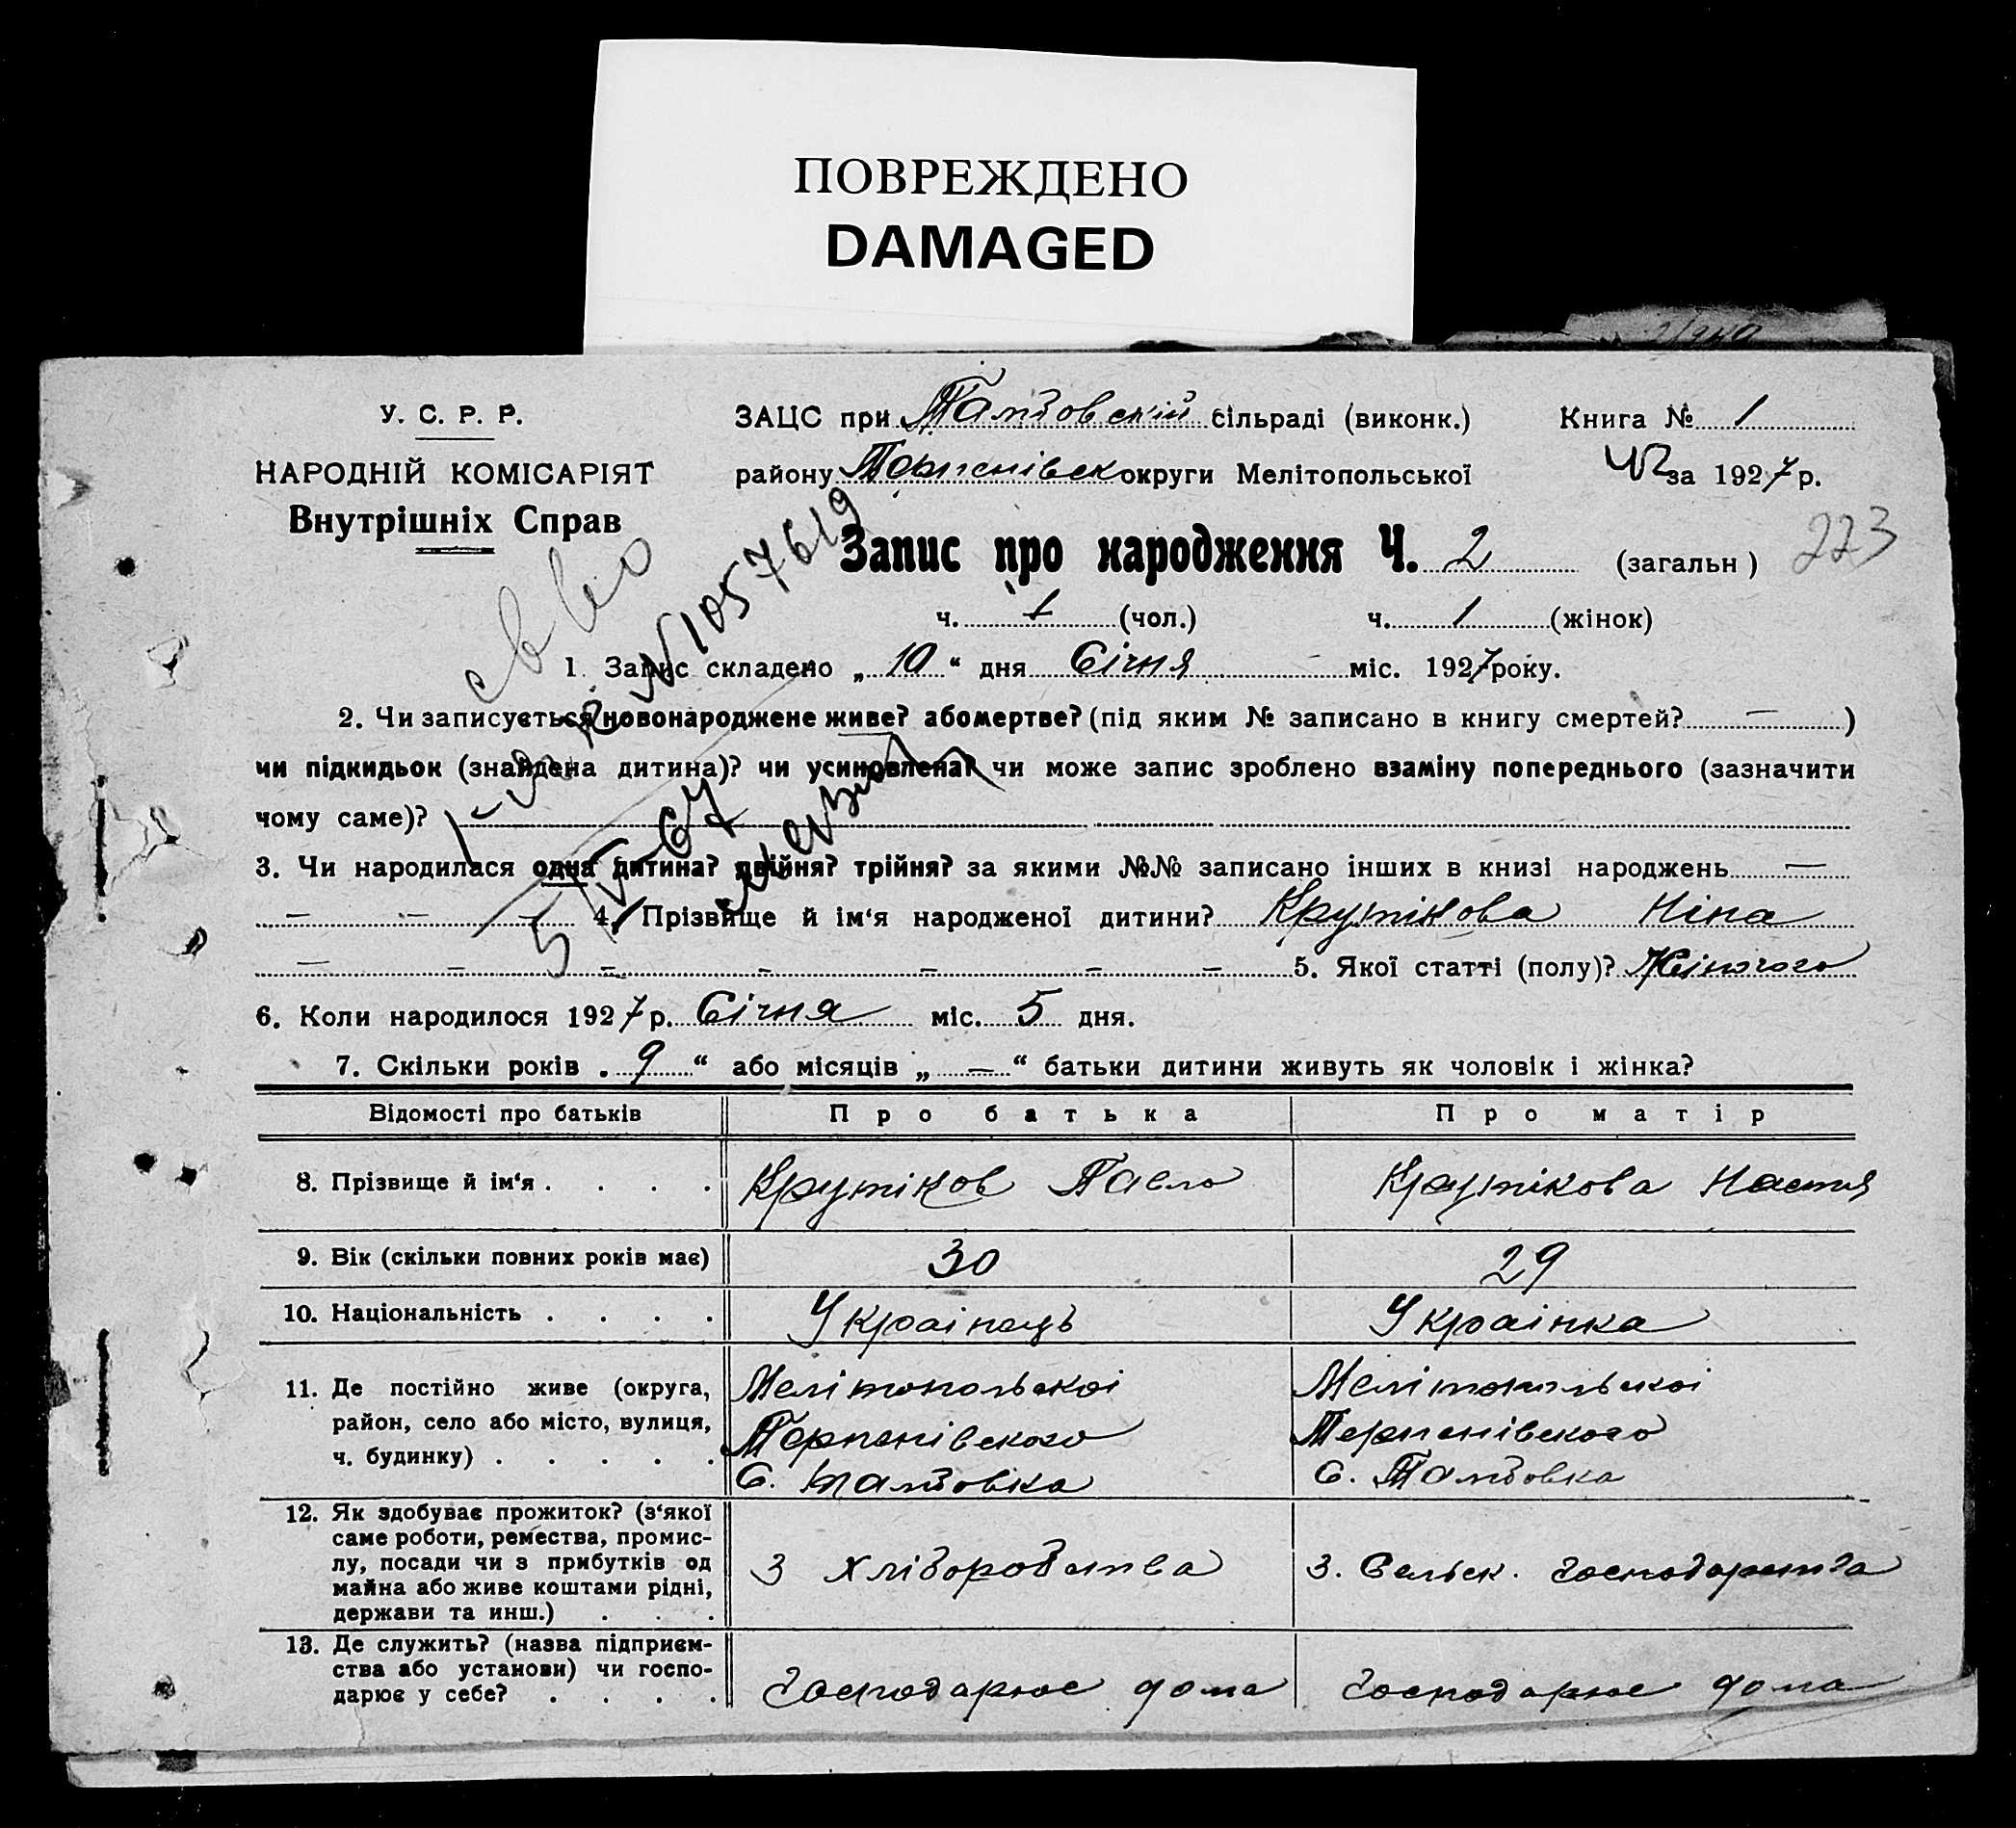 ПОВРЕЖДЕНО
DAMAGED
У. С. Р. Р.
НАРОДНІЙ КОМІСАРІЯТ
Внутрішніх Справ
ЗАЦС при Тамбовській сільраді (виконк.) Книга № 1
району Терпенівск округи Мелітопольської за 1927 р.
223
Запис про народження Ч. 2 (загальн)
ч. 1 (чол.) ч. 1 (жінок)
№ 1057619
1. Запис складено „10“ дня Січня міс. 1927 року.
2. Чи записується новонароджене живе? або мертве? (під яким № записано в книгу смертей? — )
чи підкидьок (знайдена дитина)? чи усиновлена? чи може запис зроблено взаміну попереднього (зазначити
чому саме)?
5/IV-67
3. Чи народилася одна дитина? двійня? трійня? за якими №№ записано інших в книзі народжень —
— — — 4. Прізвище й ім‘я народженої дитини? Крутікова Ніна
— — — — — — — 5. Якої статті (полу)? Жіночого
6. Коли народилося 1927 р. Січня міс. 5 дня.
7. Скільки років „ 9 “ або місяців „ — “ батьки дитини живуть як чоловік і жінка?
Відомості про батьків Про батька Про матір
8. Прізвище й ім‘я . . . . Крутіков Павло Крутікова Настя
9. Вік (скільки повних років має) 30 29
10. Національність . . . . Українець Українка
11. Де постійно живе (округа, Мелітопольскоі Мелітопольскоі
район, село або місто, вулиця, Терпенівского Терпенівского
ч. будинку) . . . . . С. Тамбовка С. Тамбовка
12. Як здобуває прожиток? (з‘якої
саме роботи, ремества, промис-
лу, посади чи з прибутків од З хліборобства З. Сельск. господарства
майна або живе коштами рідні,
держави та инш.) . . .
13. Де служить? (назва підприєм-
ства або установи) чи госпо-
дарює у себе? . . . . Господарює дома Господарює дома